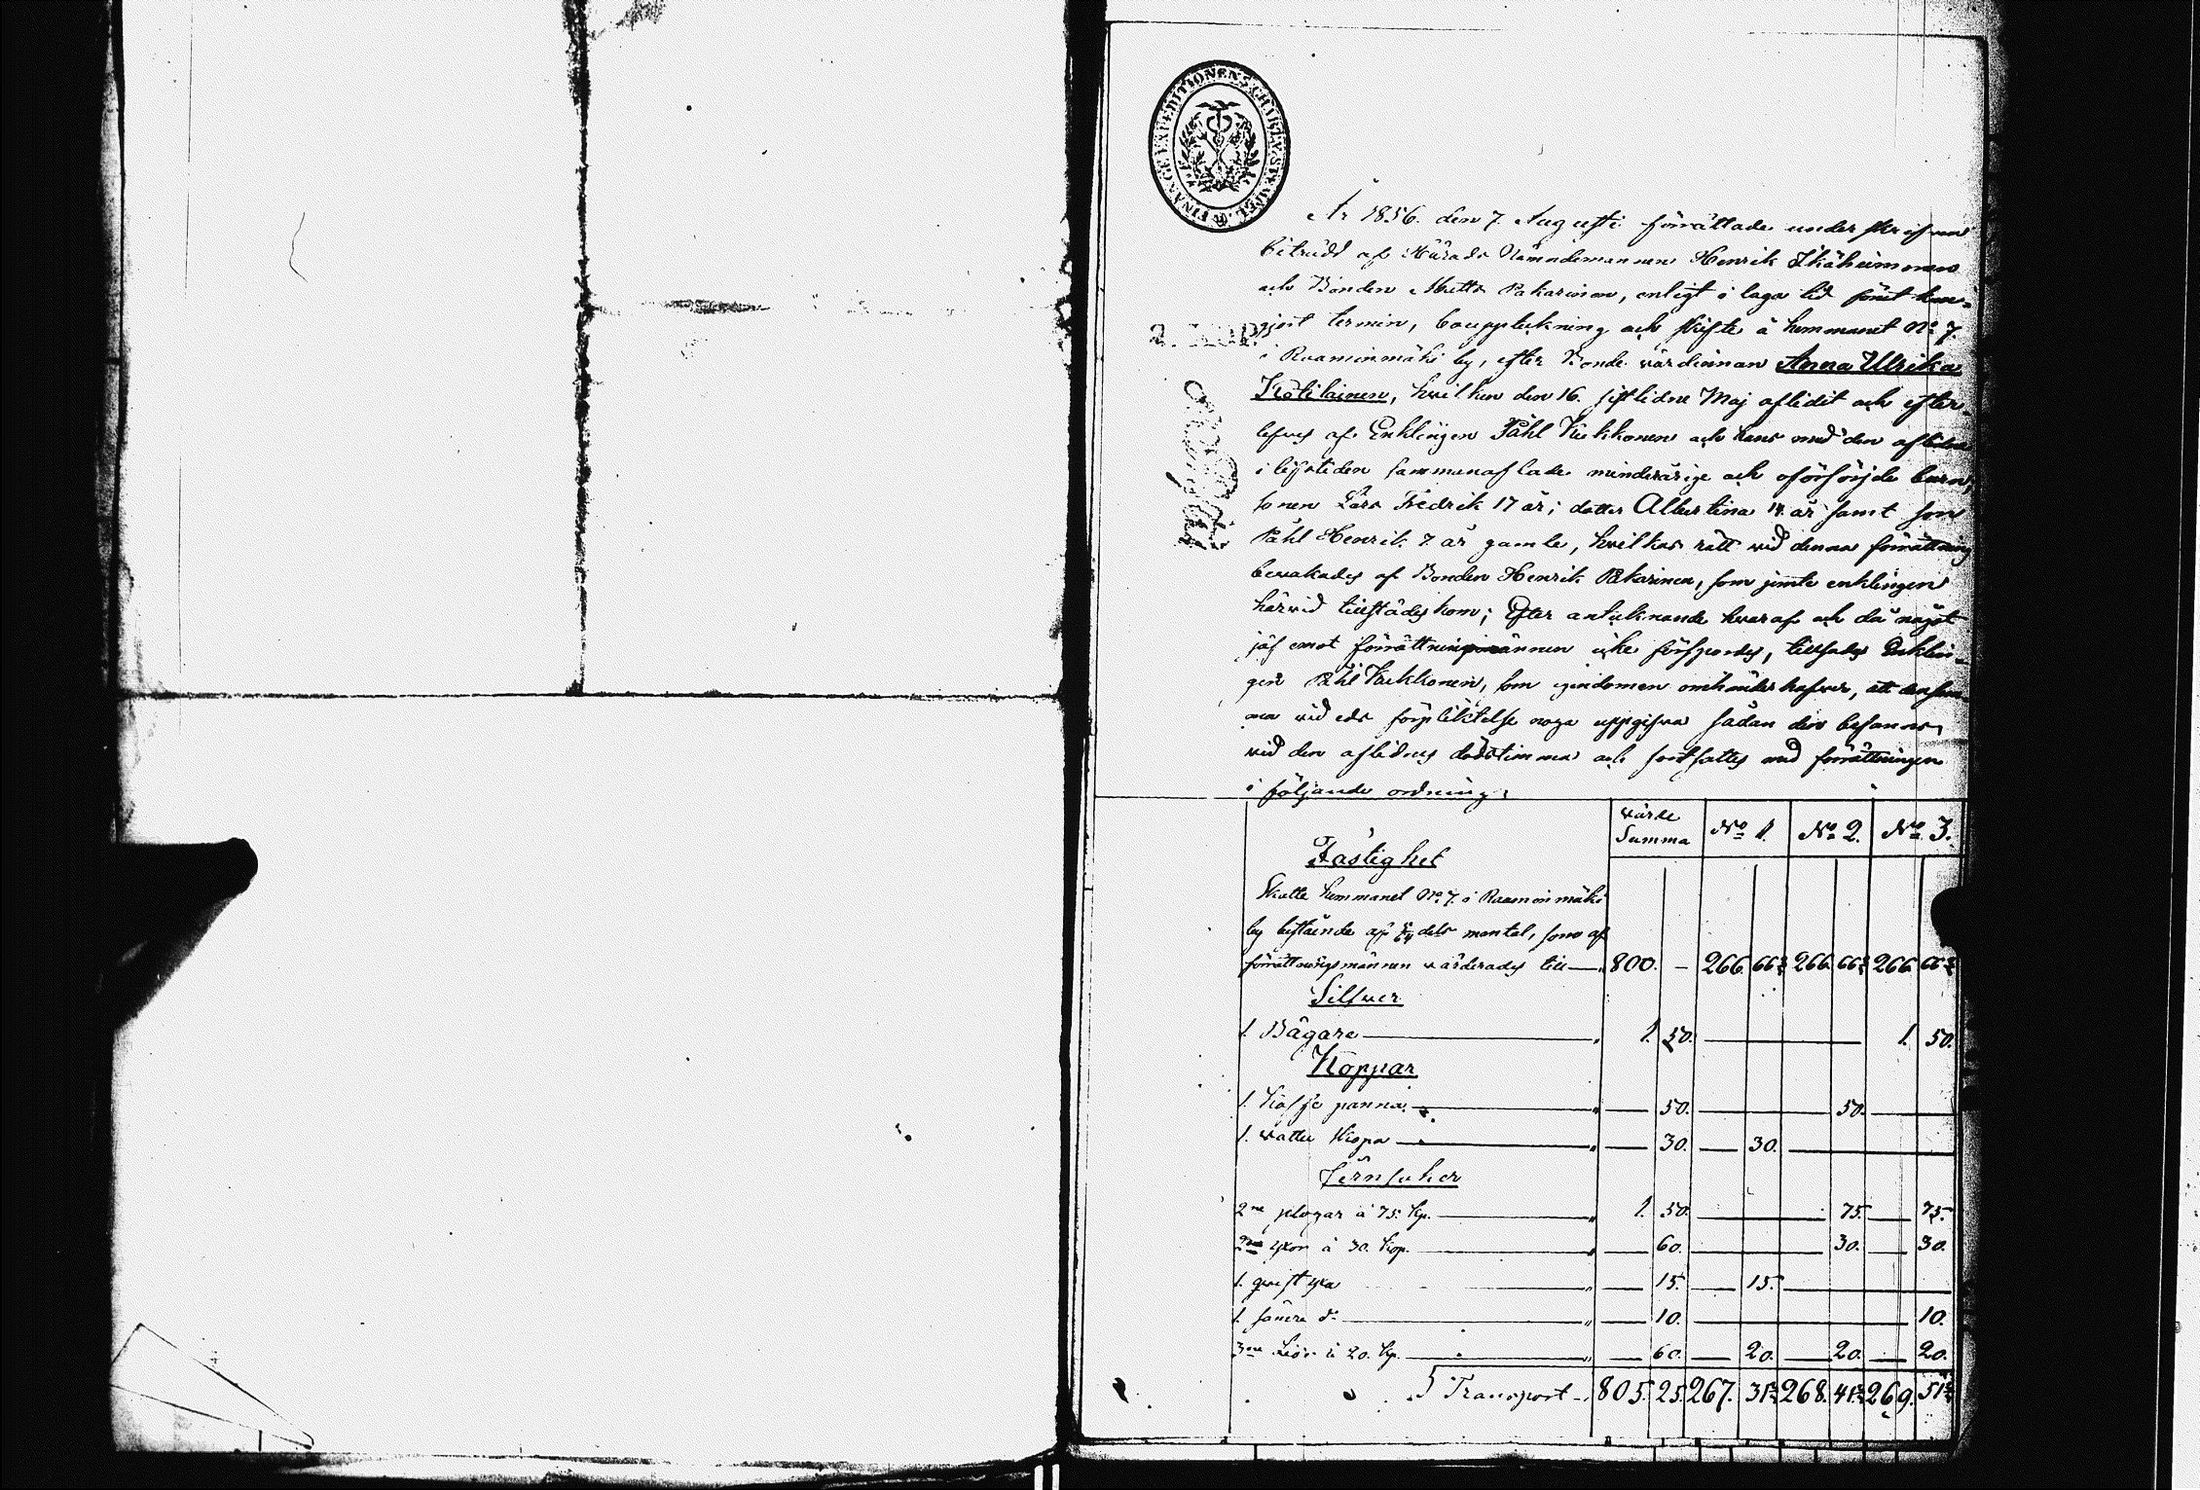 FINANCE EXPEDITIONENS CHARTÆ STÄMPEL
År 1856. den 7 Augusti förrättade under skrifven
biträdd af Härads Nämndemannen Henrik Ikäheimonen
och Bonden Matts Pakarinen, enligt i laga tid förut kun-
gjort termin, bouppteckning och skifte å hemmanet No 7.
2. KOP.
i Raaminmäki by, efter Bonde värdinnan Anna Ulrika
Kötilainen, hvilken den 16. sistlidne Maj aflidit och efter-
lefves af Enklingen Påhl Kukkonen och hans med den aflidna
i lifstiden sammanaflade minderårige och oförsörjde barn,
sonen Lars Fredrik 17 år; dotter Albertina 14 år samt son
Påhl Henrik 7. år gamle, hvilkas rätt vid denna förrättning
bevakades af Bonden Henrik Pakarinen, som jemte enklingen
härvid tillstädes kom; Efter antecknande hvaraf och då något
jäf emot förrättningsmännen icke förspordes, tillsades Enklin-
gen Påhl Kukkonen, som egendomen omhänder hafver, att densam
ma vid eds förpliktelse noga uppgifva sådan den befanns
vid den aflidnes dödstimma och fortsattes med förrättningen
i följande ordning:
värde Summa No 1. No 2. No 3.
Fastighet
Skatte hemmanet No 7. i Raaminmäki
by bestående af dels mantal, som af
förrättningsmännen värderades till 800. — 266. 66⅔ 266. 66⅔ 266. 66⅔
Silfver
1. Bägare 1. 50. 1. 50.
Koppar
1. kaffe panna 50. 50.
1. vatten skopa 30. 30.
Jernsaker
2ne plogar à 75. kp. 1. 50. 75. 75.
2ne yxor à 30. kop. 60. 30. 30.
1. yxa 15. 15.
1. sämre do 10. 10.
3ne Liar à 20. kp. 60. 20. 20. 20.
Transport 805. 25. 267. 31⅔ 268. 41⅔ 269. 51⅔